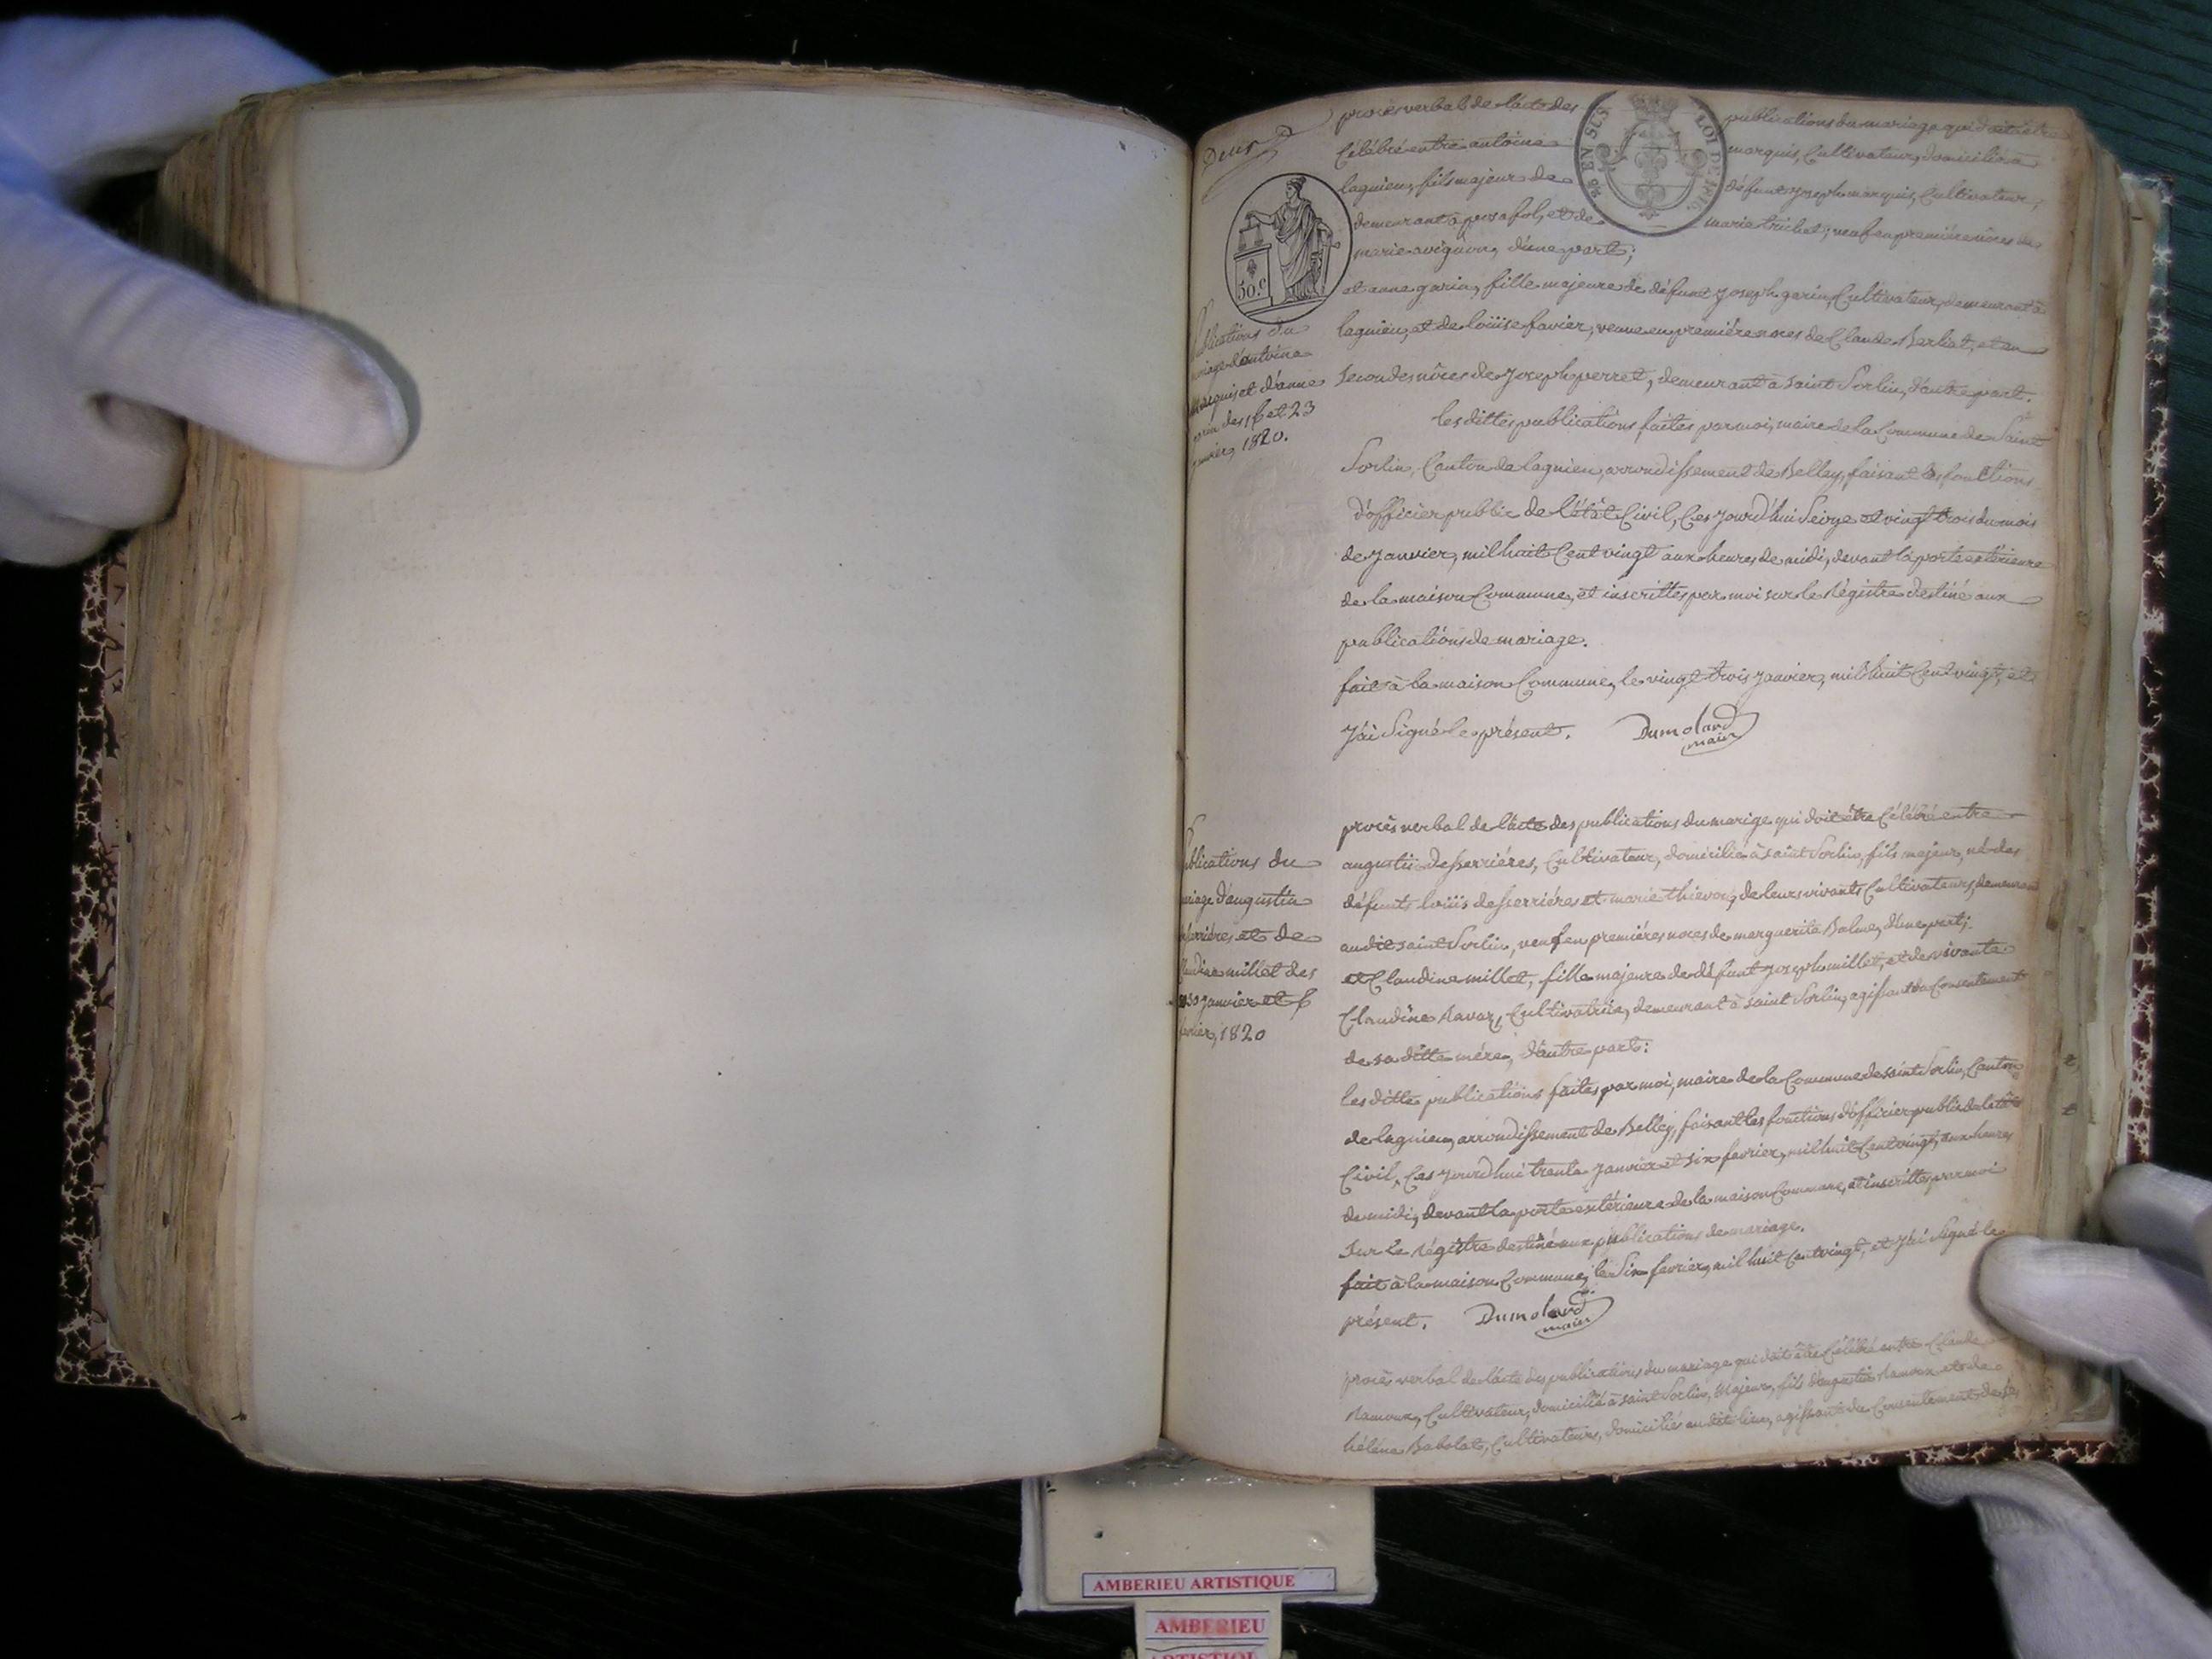 Deux
procès verbal de l'acte des publications du mariage qui doit être
Célébré entre antoine marquis, Cultivateur, domicilié à
lagnieu, fils majeur de défunt joseph marquis, Cultivateur,
demeurant à et de marie trichet; veuf en premières nôces de
marie avignon, d'une part;
et anne garin, fille majeure de défunt Joseph garin, Cultivateur, demeurant à
lagnieu, et de loüise favier, veuve en premiére noces de Claude Berliat, et en
secondes nôces de Joseph perret, demeurant à saint Sorlin, d'autre part.
les dittes publications faites par moi, maire de la Commune de Saint
Sorlin, Canton de lagnieu, arrondissement de Belley, faisant les fonctions
d'officier public de l'état Civil, Ces jourd'hui seize et vingt trois du mois
de janvier, mil huit Cent vingt aux heures de midi, devant la porte extérieure
de la maison Commune, et inscrittes par moi sur le Régistre destiné aux
publications de mariage.
fait à la maison Commune, le vingt trois janvier, mil huit Cent vingt, et
j'ai Signé le présent. Dumolard
maire
50.c
EN SUS
LOI DE 1816
publications du
mariage d'antoine
marquis et d'anne
garin des 16 et 23
janvier, 1820.
procès verbal de l'acte des publications du marige qui doit être Célébré entre
augustin Desserriéres, Cultivateur, domicilié à saint Sorlin, fils majeur, né des
défunts loüis desserriéres et marie thievon, de leurs vivants Cultivateurs, demeurant
audit saint Sorlin, veuf en premiéres noces de marguerite Balme, d'une part;
et Claudine millet, fille majeure de défunt joseph millet, et de vivante
Claudine Ravaz, Cultivatrice, demeurant à saint Sorlin, agissant du Consentement
de sa ditte mére, d'autre part:
les ditte publications faites par moi, maire de la Commune de saint Sorlin, Canton
de lagnieu, arrondissement de Belley, faisant les fonctions d'officier public de l'état
Civil, Ces jourd'hui trente janvier et six fevrier, mil huit Cent vingt, aux heures
de midi, devant la porte extérieure de la maison Commune, et inscrittes par moi
sur le Régistre destiné aux publications de mariage.
fait à la maison Commune, le Six fevrier, mil huit Cent vingt, et j'ai Signé le
présent. Dumolard
maire
publications du
mariage d'augustin
desserriéres et de
Claudine millet des
30 janvier et 6
fevrier, 1820
procès verbal de l'acte des publications du mariage qui doit être Célébré entre Claude
Ramoux, Cultivateur, domicilié à saint Sorlin, Majeur, fils d'augustin Ramoux et de
héléne Babolat, Cultivateurs, domiciliés au dit lieu, agissant du Consentement de ses
AMBERIEU ARTISTIQUE
AMBERIEU
ARTISTIQUE